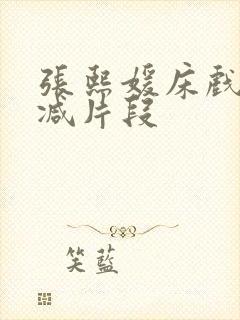 張熙媛床戲
减片段
笑藍